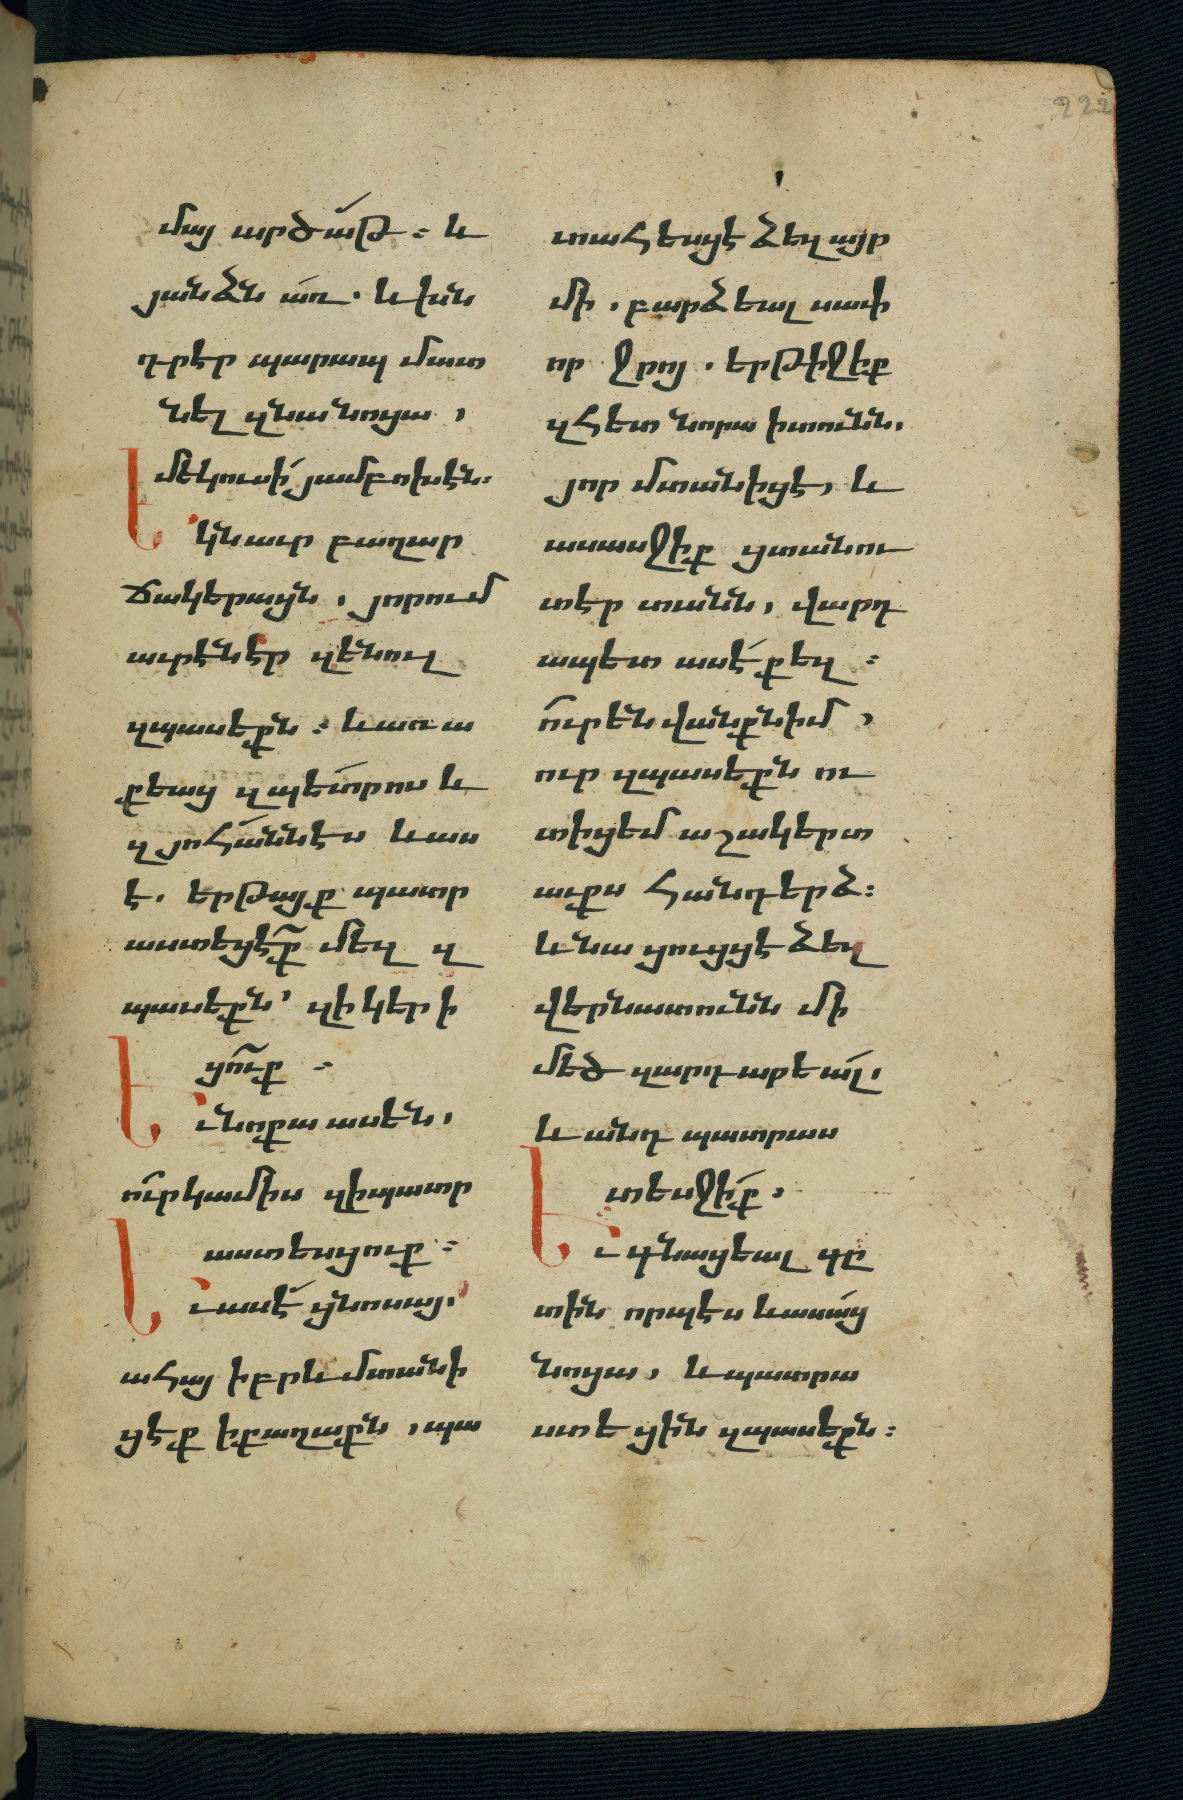 222
մայ արծաթ ։ և
յանձն առ . և խն
դրէր պարապ մատ
նել զնա նոցա ,
Ե մեկուսի յամբոխէն։
Եկն աւր բաղար
ճակերացն , յորում
աւրէն էր զենուլ
զպասեքն ։ և առա
քեաց զպետրոս և
զյոհաննէս և աս
է . երթայք պատր
աստեցէք մեզ զ
պասեքն՝ զի կերի
ցուք ։
Եւ նոքա ասեն ,
ուր կամիս զի պատր
աստեսցուք ։
Եւ ասէ ցնոսայ .
ահայ իբրև մտանի
ցէք ի քաղաքն , պա
տահեսցէ ձեզ այր
մի . բարձեալ սափ
որ ջրոյ . երթիջիք
զհետ նորա ի տունն.
յոր մտանիցէ , և
ասասջիք ցտանու
տէր տանն , վարդ
ապետ ասէ քեզ ։
ուր են վանքն իմ ,
ուր զպասեքն ու
տիցեմ աշակերտ
աւքս հանդերձ ։
և նա ցուցցէ ձեզ
վերնատունն մի
մեծ զարդարեալ .
և անդ պատրաս
տեսջիք .
Եւ գնացեալ գը
տին որպէս և ասաց
նոցա , և պատրա
ստեցին զպասեքն ։